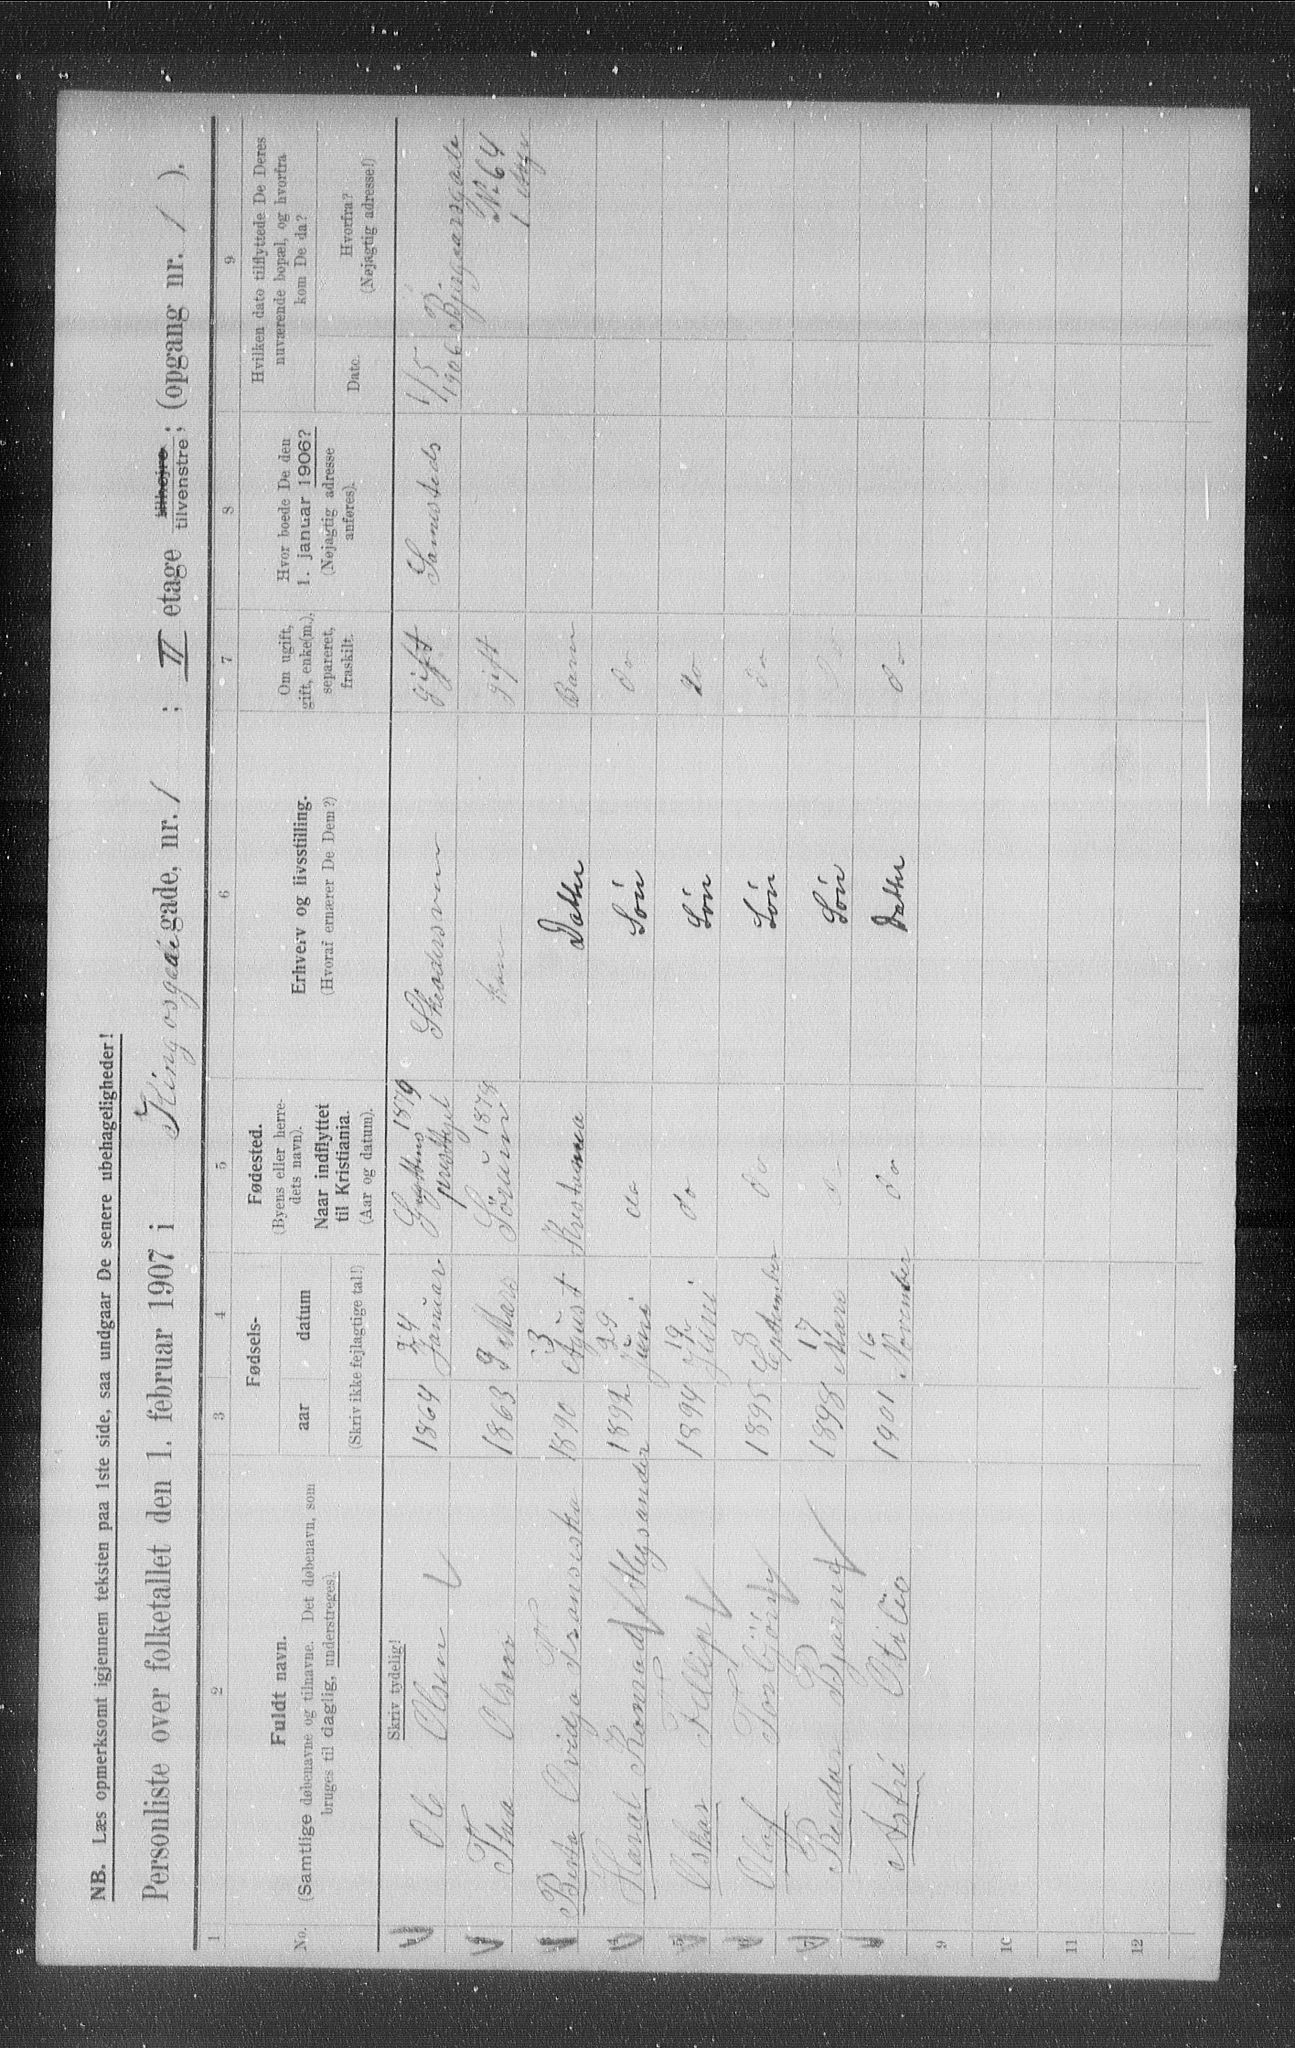 NB. Læs opmerksomt igjennem teksten paa 1ste side, saa undgaar De senere ubehageligheder!
Personliste over folketallet den 1. februar 1907 i Kingosgade gade, nr. 1 ; II etage tilhøjre tilvenstre; (opgang nr. 1 ).
1 2 3 4 5 6 7 8 9
No.
Fuldt navn.
(Samtlige døbenavne og tilnavne. Det døbenavn, som
bruges til daglig, understreges).
Fødsels-
aar datum
(Skriv ikke fejlagtige tal!)
Fødested.
(Byens eller herre-
dets navn).
Naar indflyttet
til Kristiania.
(Aar og datum).
Erhverv og livsstilling.
(Hvoraf ernærer De Dem?)
Om ugift,
gift, enke(m.),
separeret,
fraskilt.
Hvor boede De den
1. januar 1906?
(Nøjagtig adresse
anføres).
Hvilken dato tilflyttede De Deres
nuværende bopæl, og hvorfra
kom De da?
Dato.
Hvorfra?
(Nøjagtig adresse!)
Skriv tydelig!
1 Ole Olsen 1864 24 Januar 1879 gift 1/5 1906
2 Thea Olsen 1863 9 Mars Sörum 1878 kone gift No 64
3 Berta Ovidja Fransiska 1890 3 Agust Kristiania Datter Barn 1 Etage
4 Haral Konrad 1892 29 Juni do Sön do
5 Oskar Fillip 1894 12 Juni do Sön do
6 Olaf Torbjörn 1895 8 September do Sön do
7 Reidar Bjarne 1898 17 Mars do Sön do
8 Astri Otilie 1901 16 November do Datter do
9
10
11
12